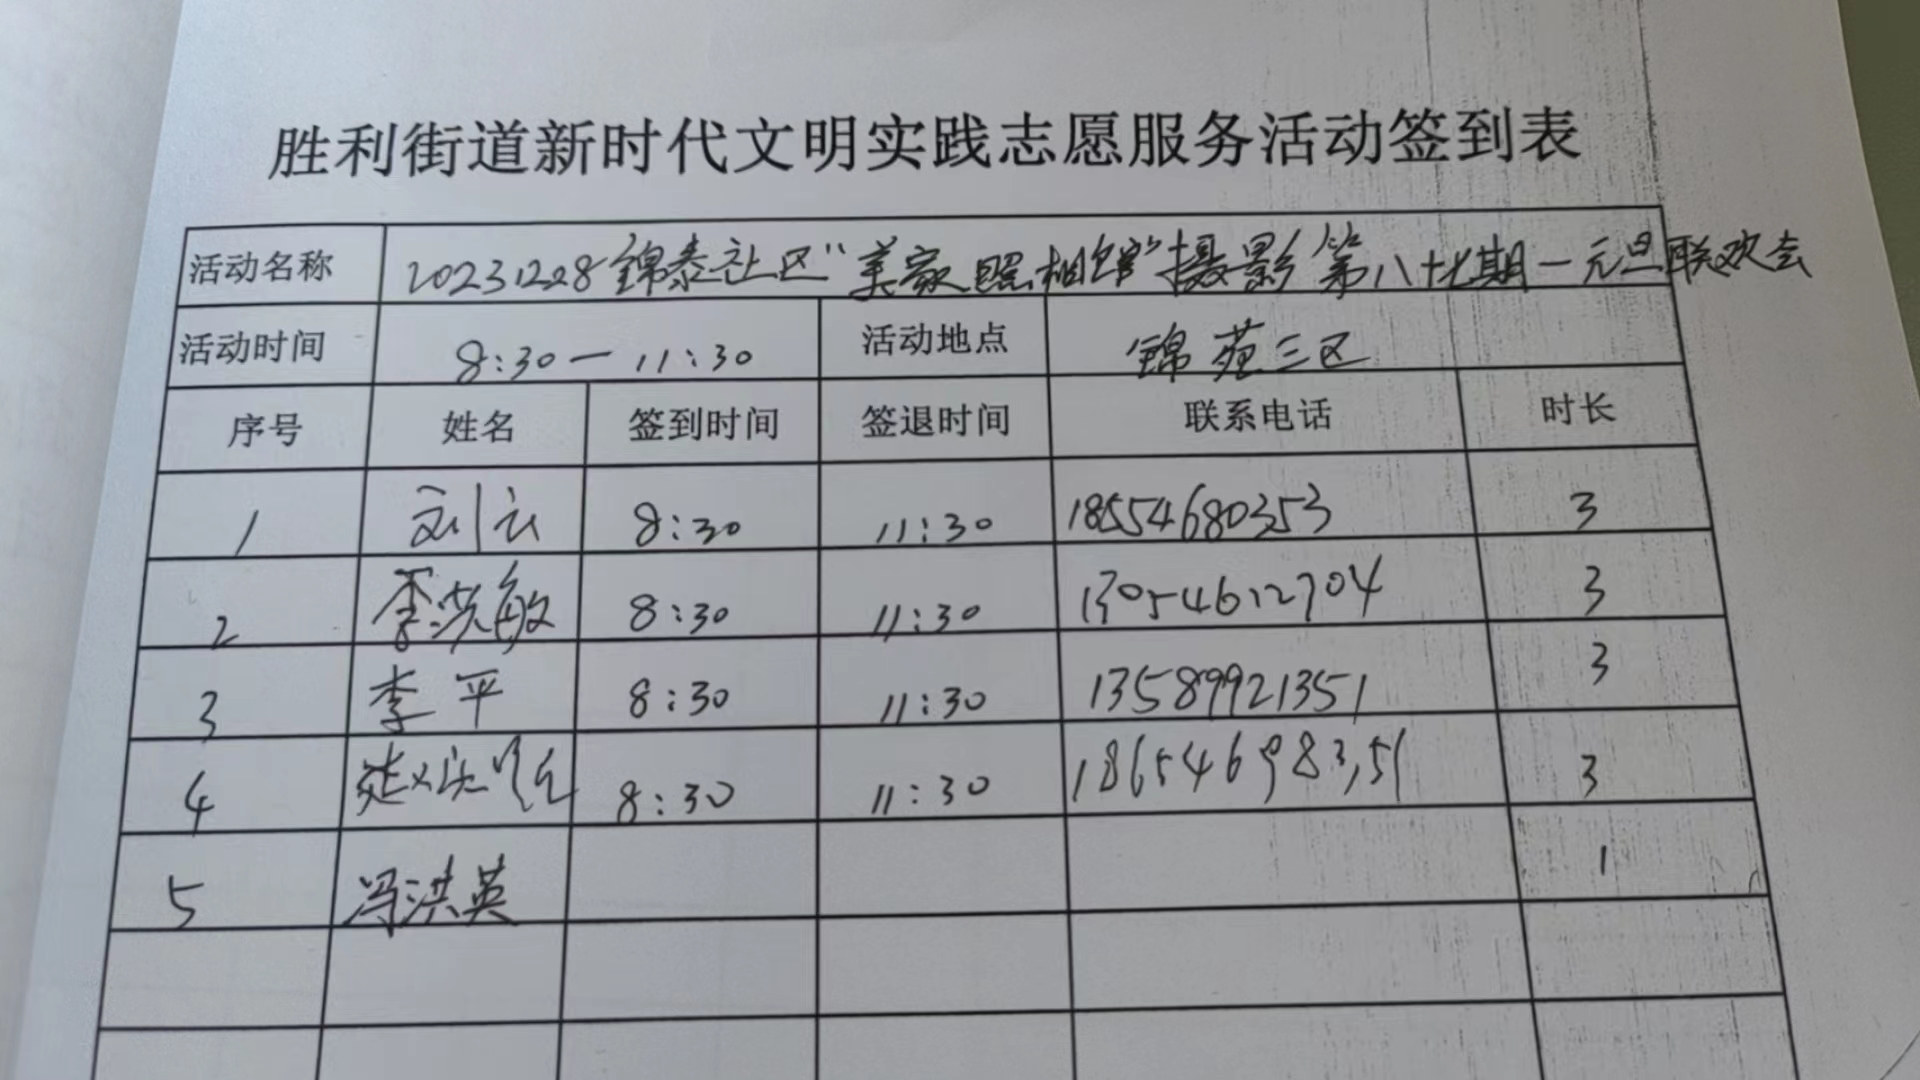 胜利街道新时代文明实践志愿服务活动签到表
活动名称 20231228锦泰社区“美家照相馆”摄影第八十七期一元旦联欢会
活动时间 8:30一11:30 活动地点 锦苑三区
序号 姓名 签到时间 签退时间 联系电话 时长
1 刘云 8:30 11:30 18554680353 3
2 李洪敏 8:30 11:30 13054612704 3
3 李平 8:30 11:30 13589921351 3
4 8:30 11:30 3
5 冯洪英 1